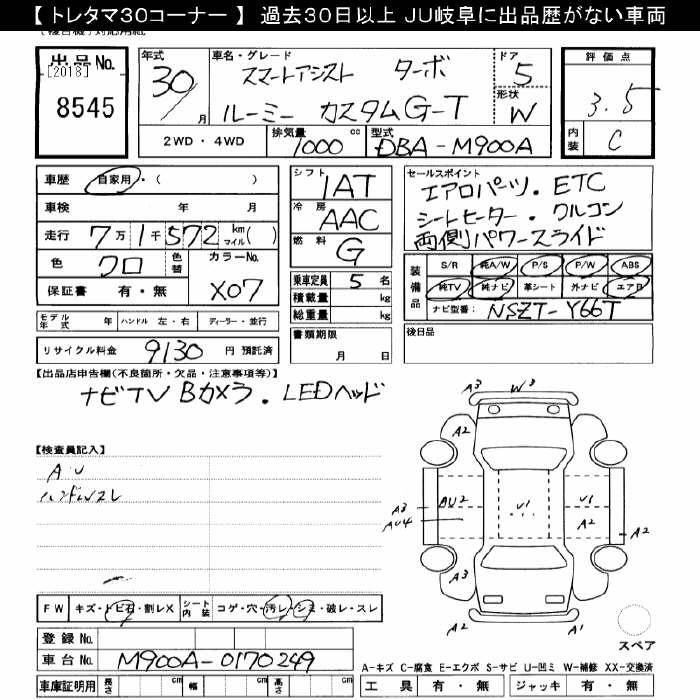 【 トレタマ30コーナー 】 過去30日以上 JU岐阜に出品歴がない車両
出品No.
[2018]
8545
年式
30
月
車名・グレード
スマートアシスト ターボ
ルーミー カスタムG-T
ドア
5
形状
W
2WD・4WD
排気量
1000 cc
型式
DBA-M900A
評価点
3.5
内装
C
車歴 自家用・( )
車検 年 月
走行 7万1千572 km マイル( )
色 クロ 色替
カラーNo.
X07
保証書 有・無
モデル年式 年 ハンドル 左・右 ディーラー・並行
リサイクル料金 9130 円 預託済
シフト
1AT
冷房
AAC
燃料
G
乗車定員 5 名
積載量 kg
総重量 kg
書類期限
月 日
セールスポイント
エアロパーツ・ETC
シートヒーター・クルコン
両側パワースライド
装備品
S/R 純A/W P/S P/W ABS
純TV 純ナビ 革シート 外ナビ エアB
ナビ型番: NSZT-Y66T
後日品
【出品店申告欄(不良箇所・欠品・注意事項等)】
ナビTV Bカメラ・LEDヘッド
【検査員記入】
AU
ハンドルスレ
A3
W3
A2
A2
A3
AU4
AU2
U1
U1
A2
A2
A3
A2
A1
スペア
FW キズ・トビ石・割レX シート内装 コゲ・穴・汚レ・シミ・破レ・スレ
登録No.
車台No. M900A-0170249
車庫証明用 長さ cm 幅 cm 高さ cm
A-キズ C-腐食 E-エクボ S-サビ U-凹ミ W-補修 XX-交換済
工具 有・無 ジャッキ 有・無